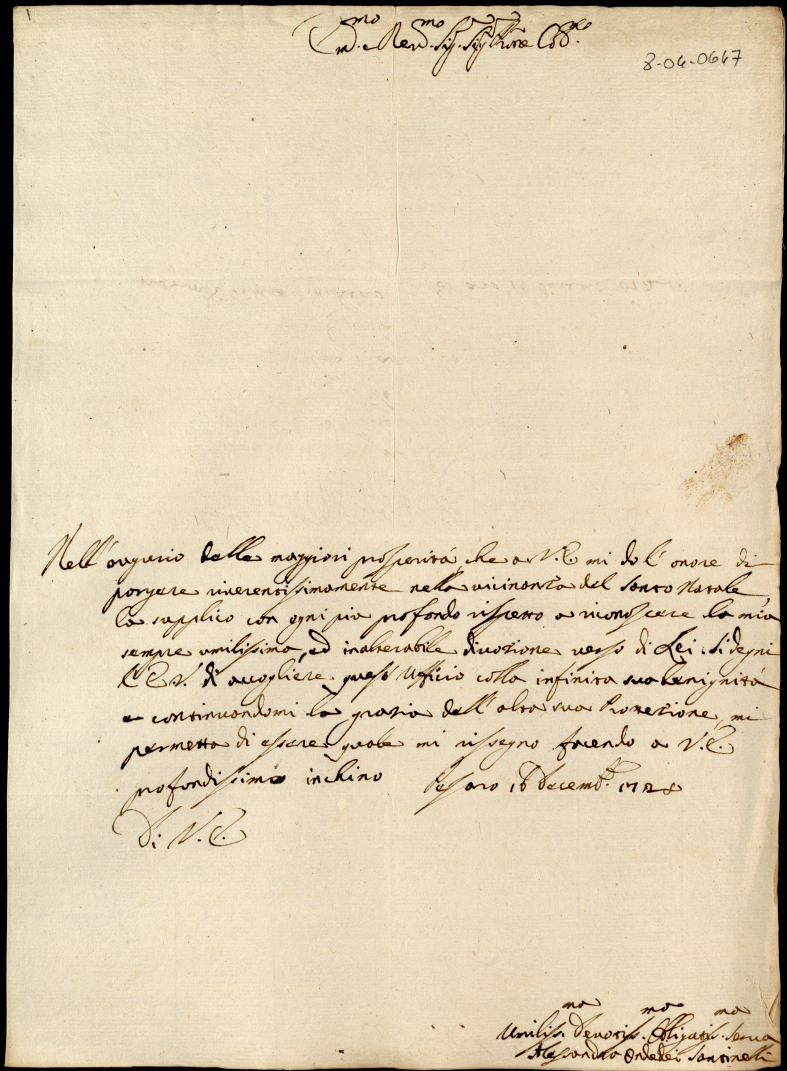 Em.mo e Rev.mo Sig. Sig. Prone Col.mo
8-04-0647
Nell'augurio delle maggiori prosperità, che a V.E. mi dò l'onore di
porgere riverentissimamente nella vicinanza del Santo Natale,
la supplico con ogni più profondo rispetto a riconoscere la mia
sempre umilissima, ed inalterabile divozione verso di Lei. Si degni
l'E.V. di accogliere quest'Ufficio colla infinita sua benignità
e continuandomi la grazia dell'alta sua Protezione, mi
permetta di essere, quale mi rissegno facendo a V.E.
profondissimo inchino Pesaro 16 Decemb.e 1728
Di V.E.
Umiliss.ma Devotiss.ma Obligatis.ma Serva
Alessandra Ondedei Santinelli